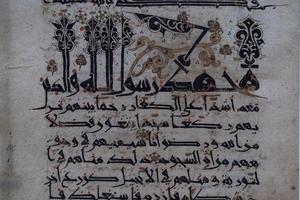 محمد رسول الله والذين
معه أشداء على الكفار رحماء بينهم تر
يهم ركعا سجدا يبتغون فضلا
من الله ورضوانا سيماهم في وجو
ههم من أثر السجود ذلك مثلهم في
التورية ومثلهم في الإنجيل كزرع أخر
ج شطأه فآزره فاستغلظ